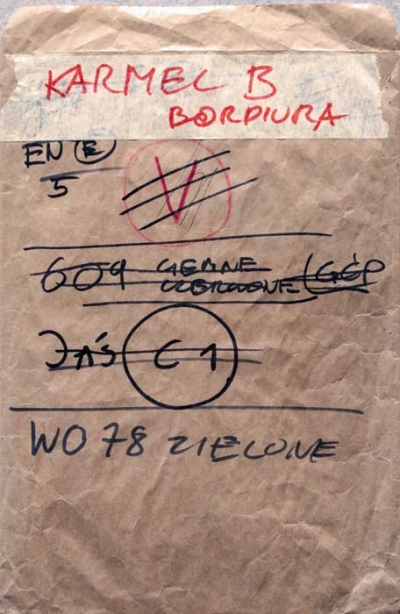 KARMEL B
BORDIURA
EN E
5
V
609 CIEMNE
CZERWONE (GÉP
JAŚ C 1
WO 78 ZIELONE